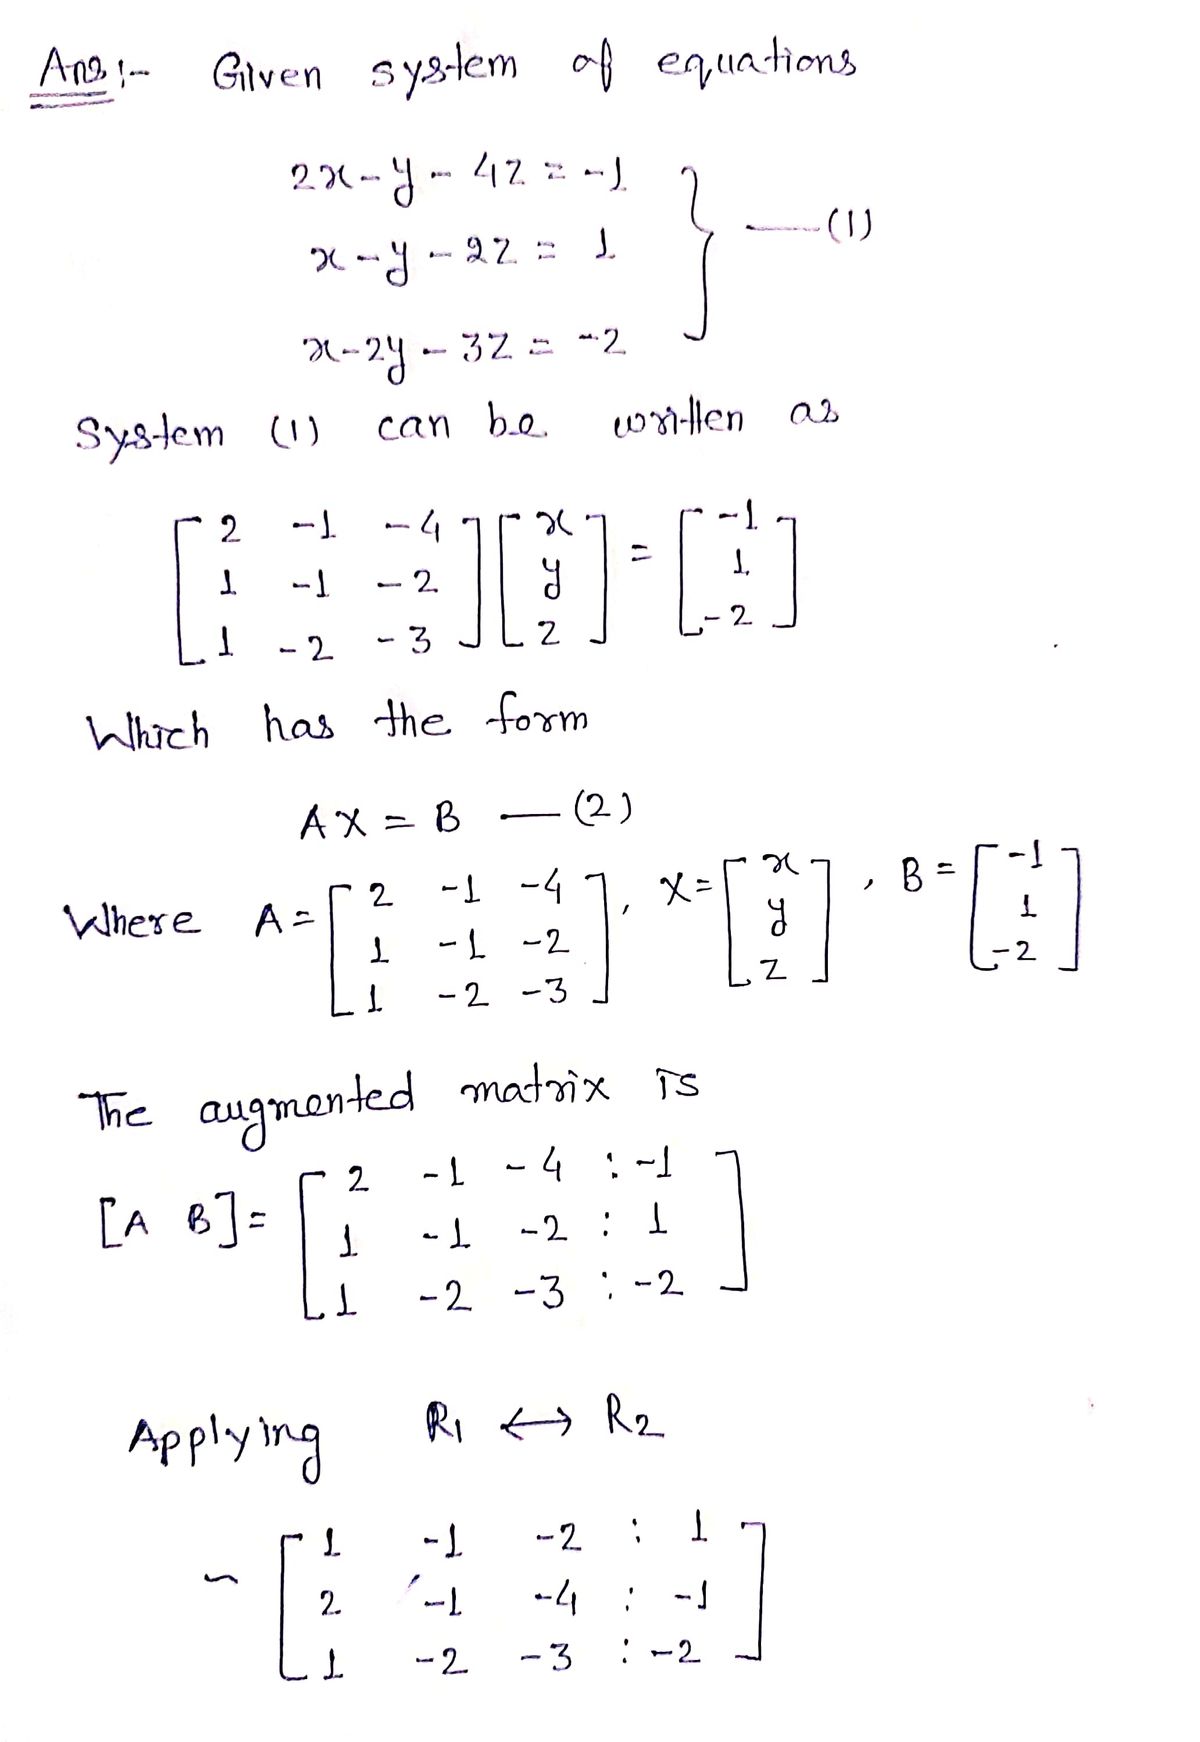 Ans :- Given system of equations
2x - y - 4z = -1
x - y - 2z = 1 } —(1)
x - 2y - 3z = -2
System (1) can be written as
[ 2 -1 -4 ] [ x ] = [ -1 ]
[ 1 -1 -2 ] [ y ] [ 1 ]
[ 1 -2 -3 ] [ z ] [ -2 ]
Which has the form
AX = B — (2)
Where A = [ 2 -1 -4 ], X = [ x ], B = [ -1 ]
[ 1 -1 -2 ] [ y ] [ 1 ]
[ 1 -2 -3 ] [ z ] [ -2 ]
The augmented matrix is
[A B] = [ 2 -1 -4 : -1 ]
[ 1 -1 -2 : 1 ]
[ 1 -2 -3 : -2 ]
Applying R1 ↔ R2
~ [ 1 -1 -2 : 1 ]
[ 2 -1 -4 : -1 ]
[ 1 -2 -3 : -2 ]